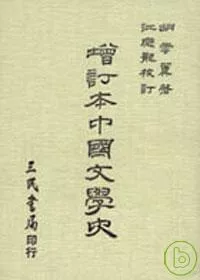 胡雲翼著
江應龍校訂
增訂本中國文學史
三民書局
印行